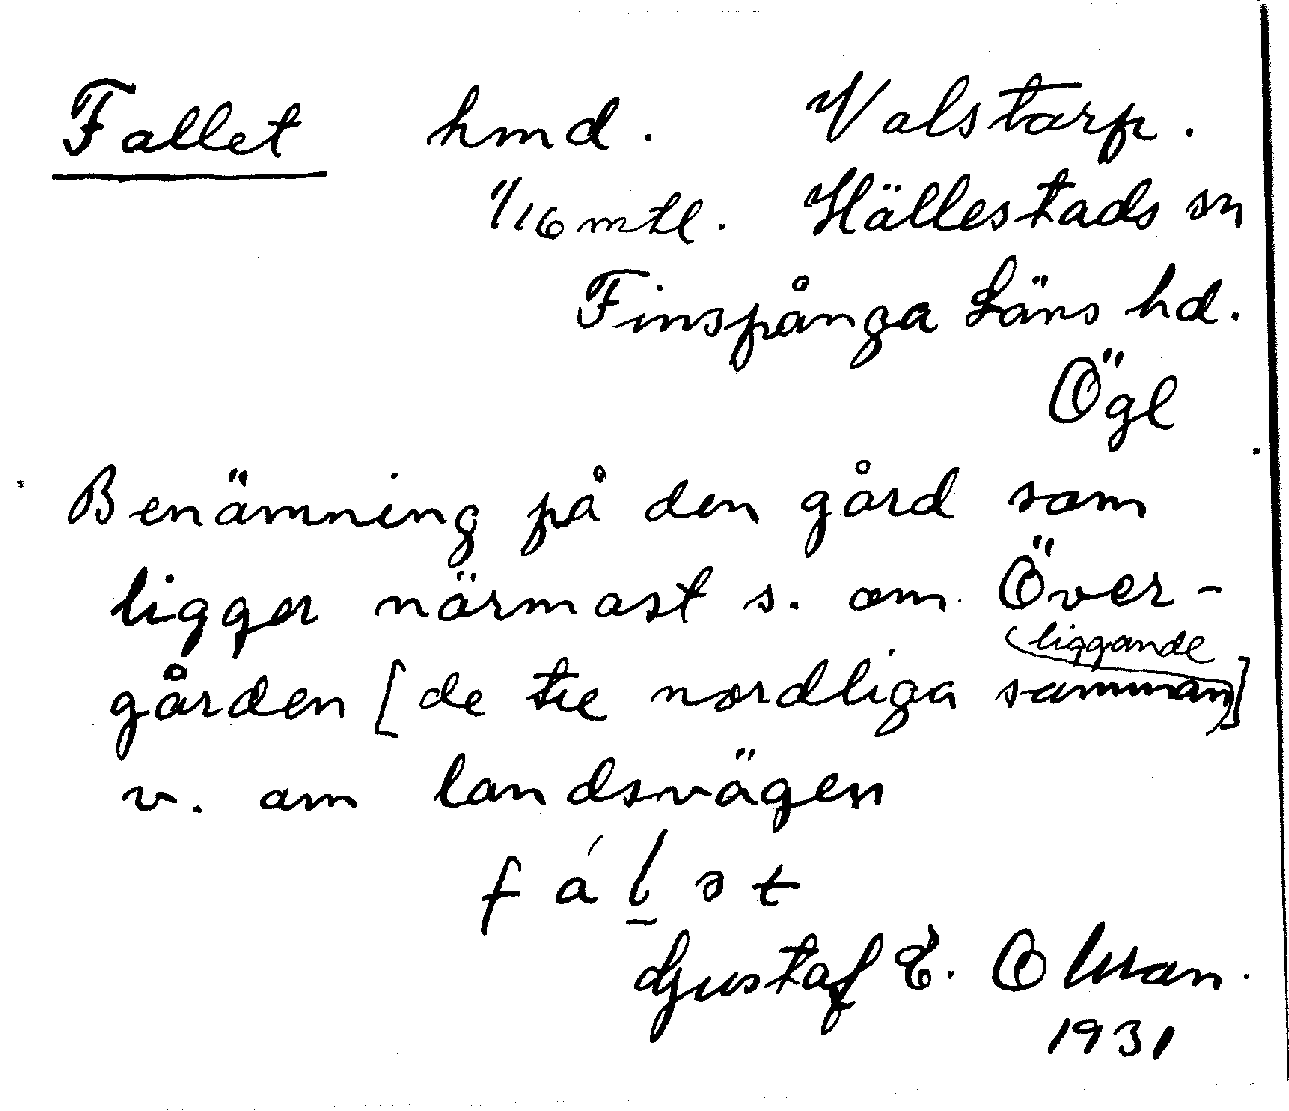 Fallet hmd. Valstorp.
1/16 mtl. Hällestads sn
Finspånga Läns hd.
Ögl
Benämning på den gård som
ligger närmast s. om Över-
liggande
gården [de tre nordliga samman]
v. om landsvägen
fálət
Gustaf E. Olsson.
1931